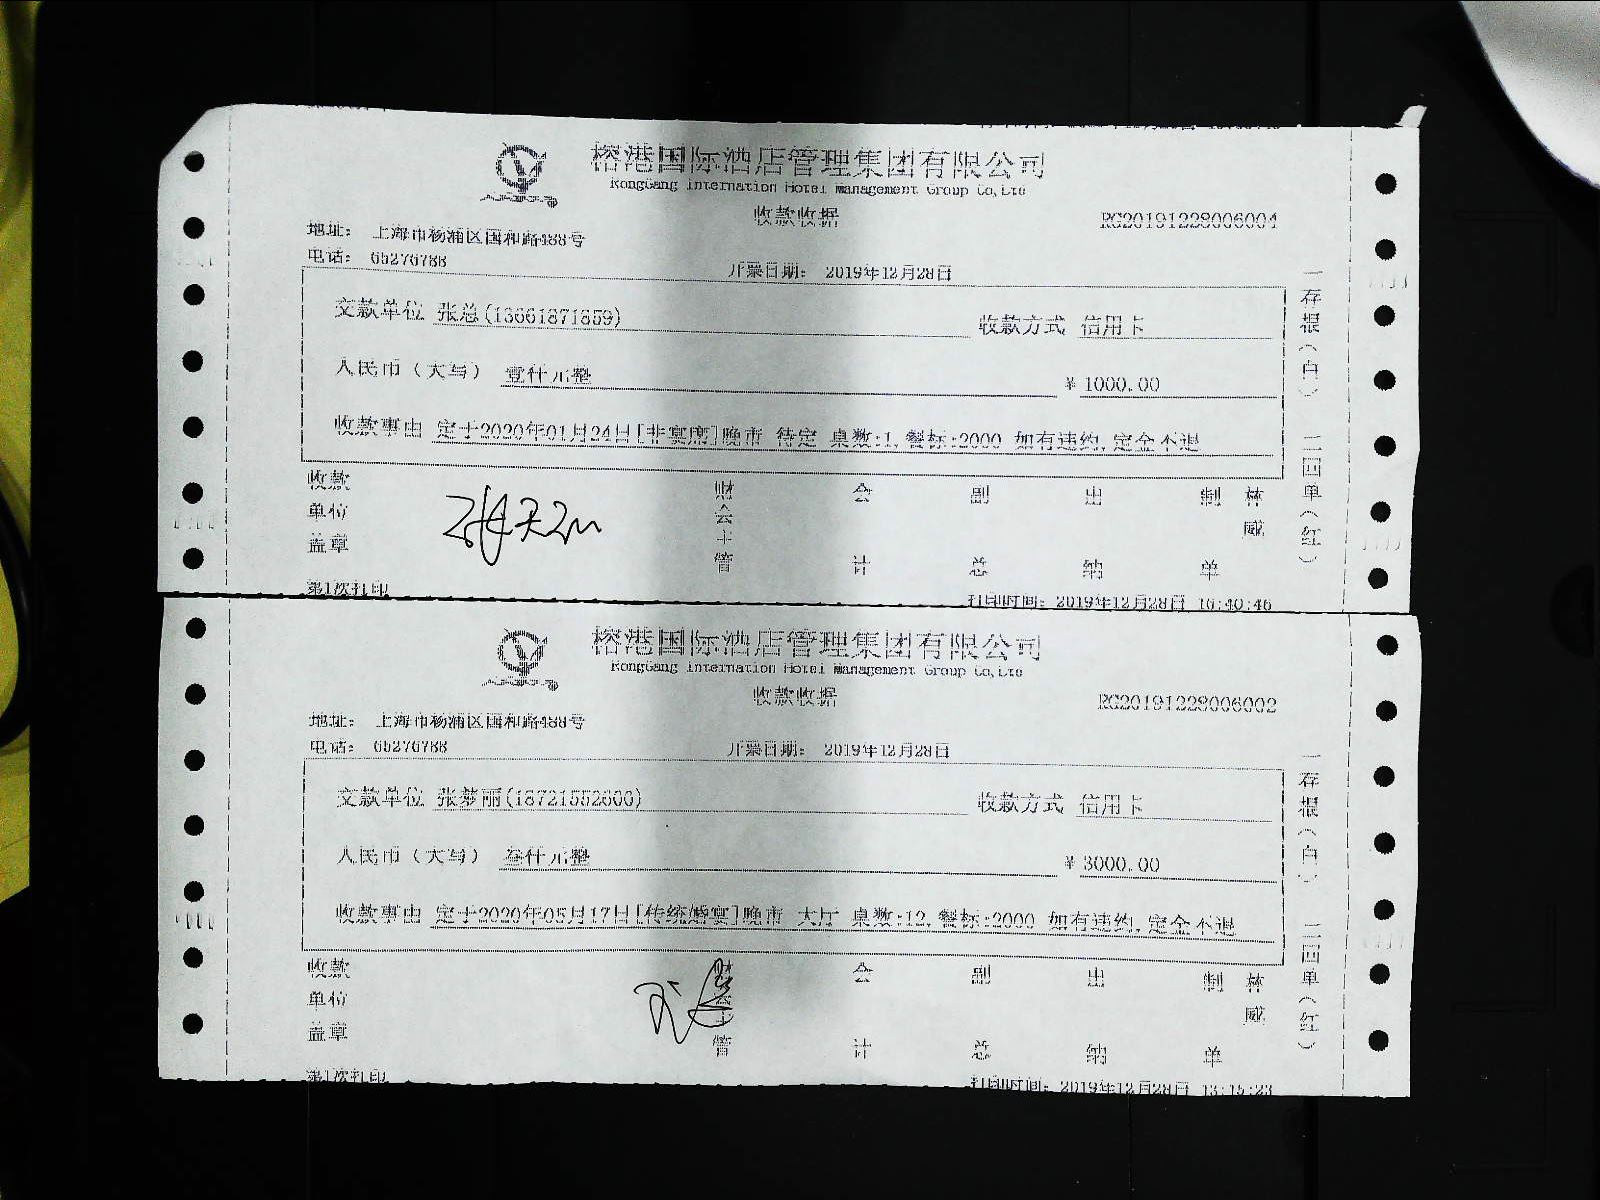 榕港国际酒店管理集团有限公司
RongGang Internation Hotel Management Group Co,Ltd
收款收据
RG20191228006004
地址： 上海市杨浦区国和路488号
电话： 65276788
开票日期： 2019年12月28日
交款单位 张总(13661871859)
收款方式 信用卡
人民币（大写） 壹仟元整
¥ 1000.00
收款事由 定于2020年01月24日[非宴席]晚市 待定 桌数:1,餐标:2000 如有违约,定金不退
一存根（白） 二回单（红）
收款单位盖章
财会主管
会计
副总
出纳
制单
林威
第1次打印
打印时间：2019年12月28日 16:40:46
榕港国际酒店管理集团有限公司
RongGang Internation Hotel Management Group Co,Ltd
收款收据
RG20191228006002
地址： 上海市杨浦区国和路488号
电话： 65276788
开票日期： 2019年12月28日
交款单位 张梦丽(18721552600)
收款方式 信用卡
人民币（大写） 叁仟元整
¥ 3000.00
收款事由 定于2020年05月17日[传统婚宴]晚市 大厅 桌数:12,餐标:2000 如有违约,定金不退
一存根（白） 二回单（红）
收款单位盖章
财会主管
会计
副总
出纳
制单
林威
第1次打印
打印时间：2019年12月28日 13:15:23